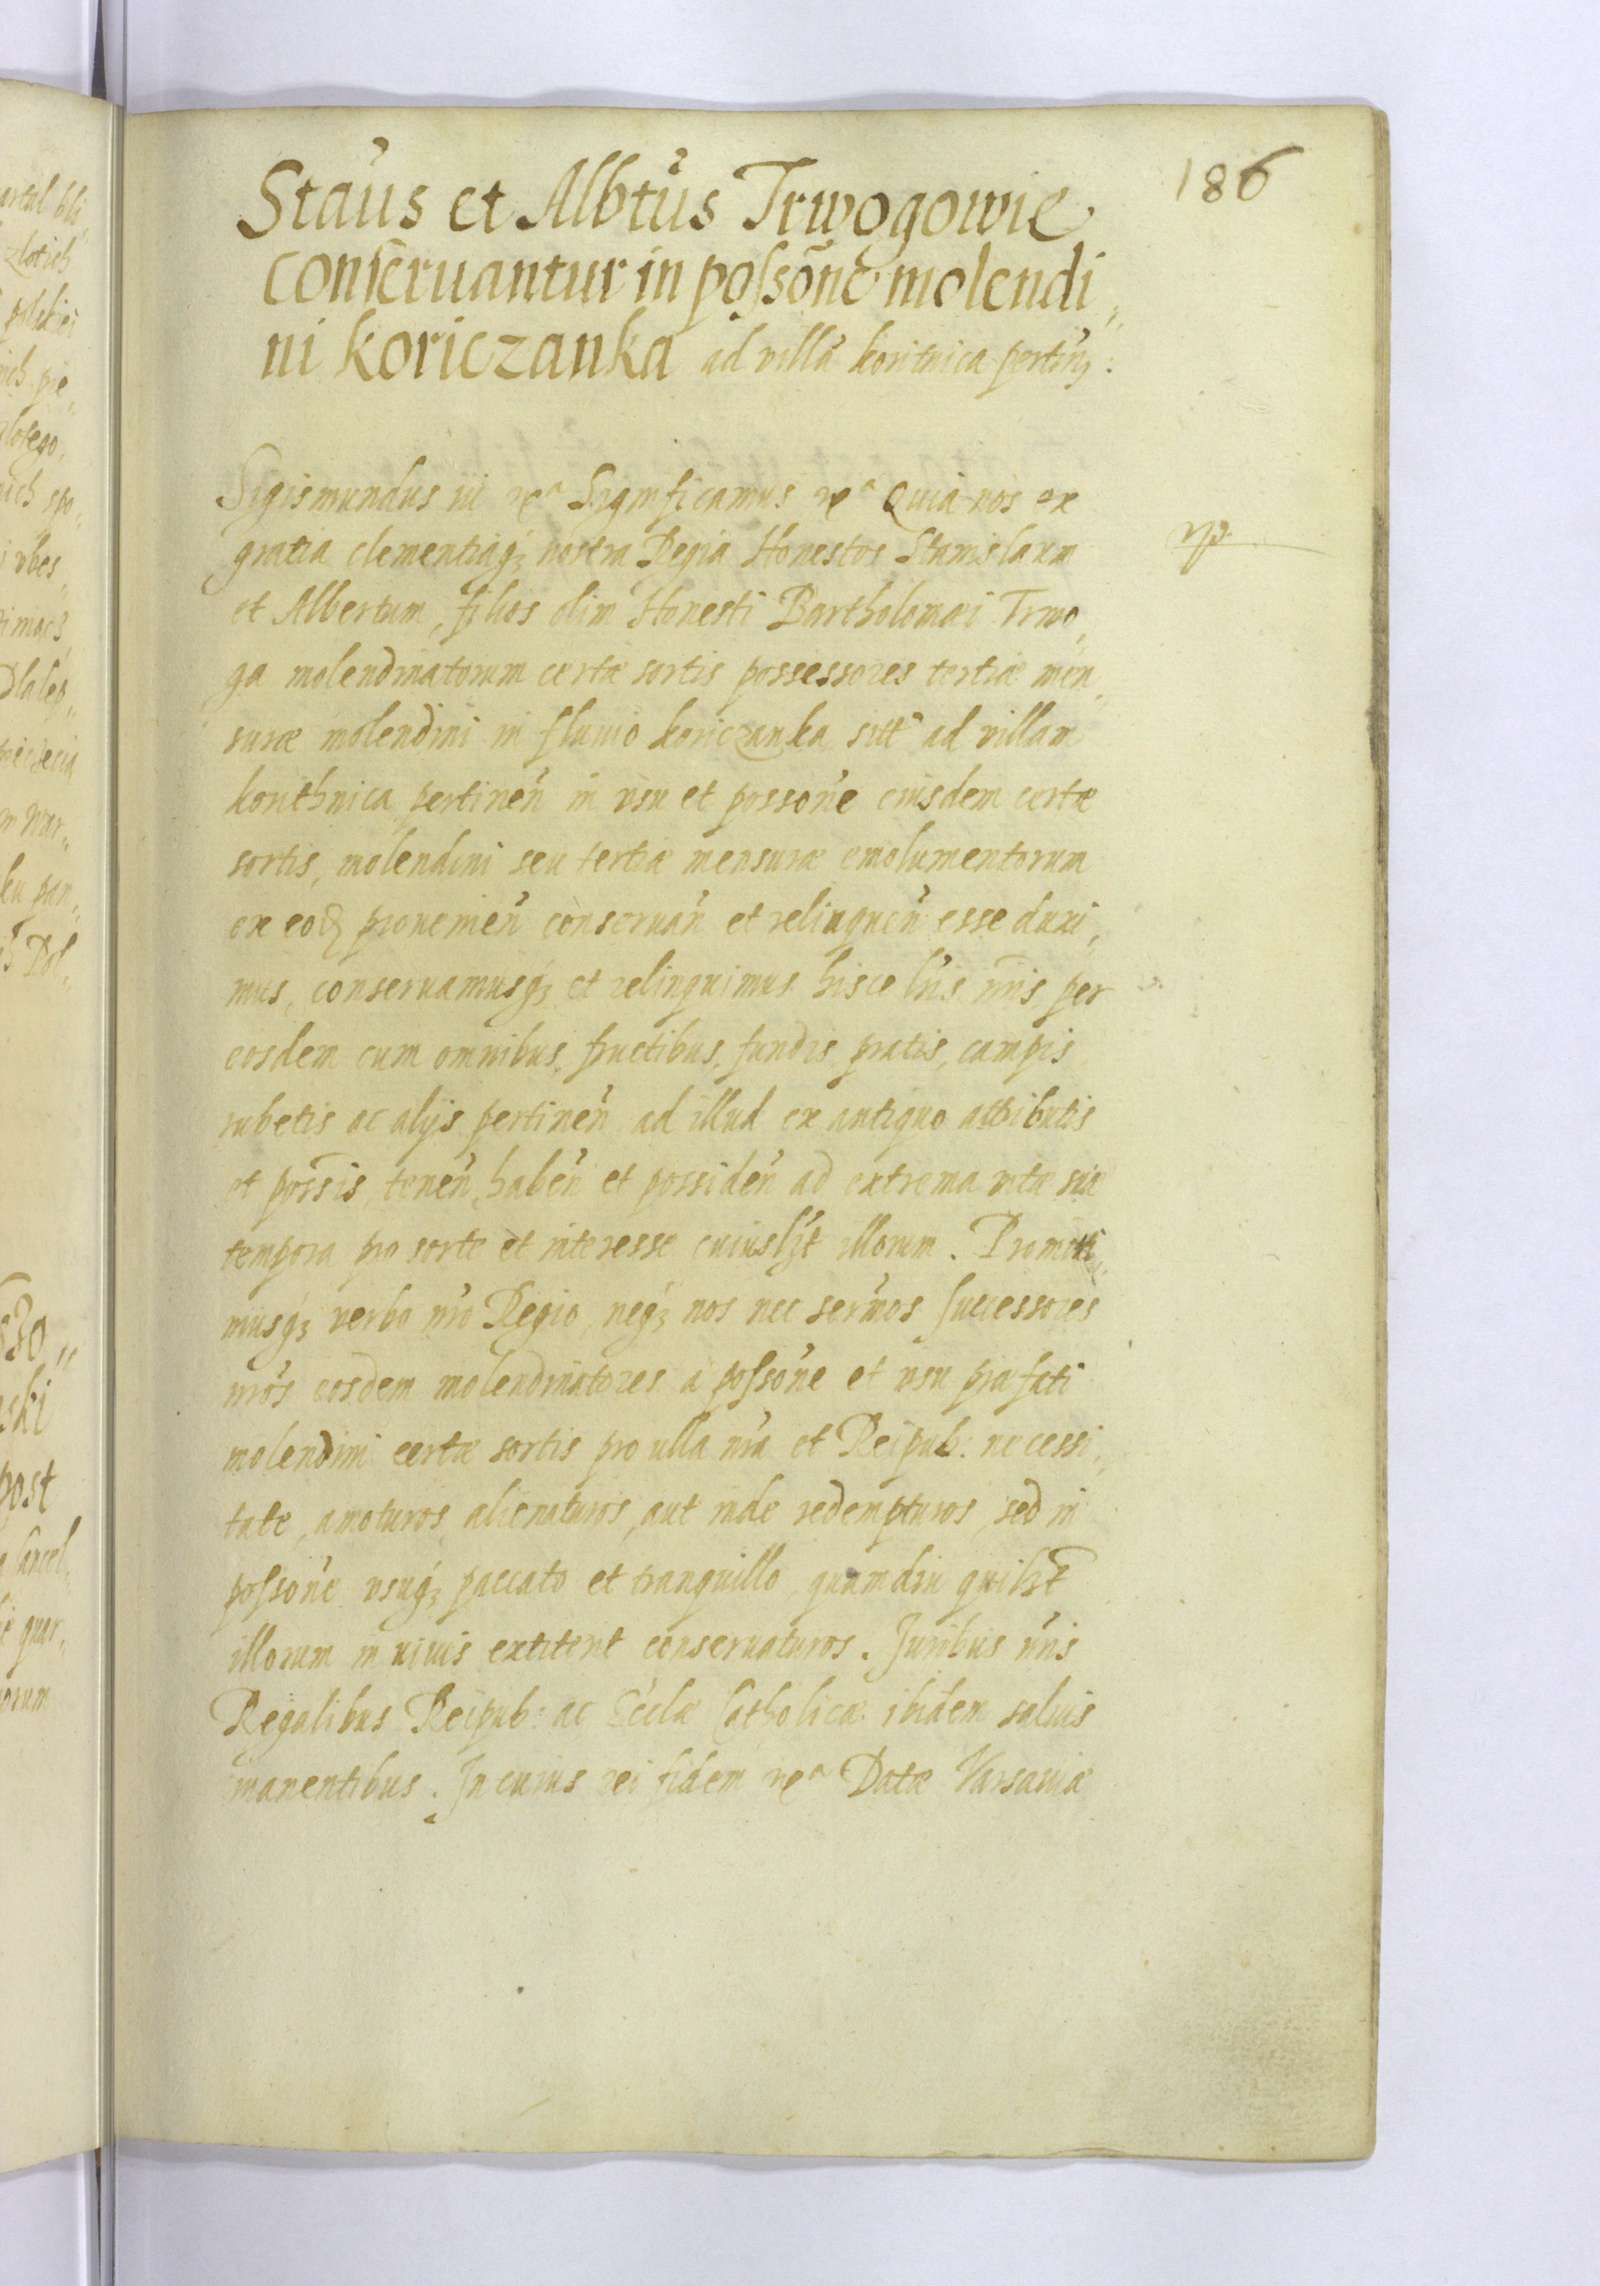 186
Sta͠us et Albt͠us Trwogowie
conseruantur in posso͠ne molendi„
ni Koriczanka ad villa͠ koritnica pertin͠:
Sigismundus iii etc. Significamus etc. Quia nos ex
gratia clementiaq; nostra Regia Honestos Stanislaum
et Albertum, filios olim Honesti Bartholomæi Trwo„
ga molendinatorum certæ sortis possessores tertiæ men„
suræ molendini in fluuio koriczanka sitt͠ ad villam
korithnica pertinen͠ in vsu et posso͠ne eiusdem certæ
sortis, molendini seu tertiæ mensuræ emolumentorum
ex eod; prouenien͠ conseruan͠ et relinquen͠ esse duxi„
mus, conseruamusq; et relinquimus hisce l͠ris n͠ris per
eosdem cum omnibus, fructibus, fundis pratis, campis
rubetis ac alijs pertinen͠ ad illud ex antiquo attributis
et poss͠is, tenen͠, haben͠ et possiden͠ ad extrema vitæ suæ
tempora pro sorte et interesse cuiusl;t illorum. Promitti„
musq; verbo n͠ro Regio, neq; nos nec ser͠mos Successores
n͠ros eosdem molendinatores a posso͠ne et vsu præfati
molendini certæ sortis pro ulla n͠ra et Reipub: necessi„
tate, amoturos, alienaturos, aut inde redempturos, sed in
posso͠ne vsuq; paccato et tranquillo, quamdiu quil;t
illorum in viuis extiterit conseruaturos. Juribus n͠ris
Regalibus Reipub: ac Eccl͠æ Catholicæ ibidem saluis
manentibus. In cuius rei fidem etc. Datæ Varsauiæ